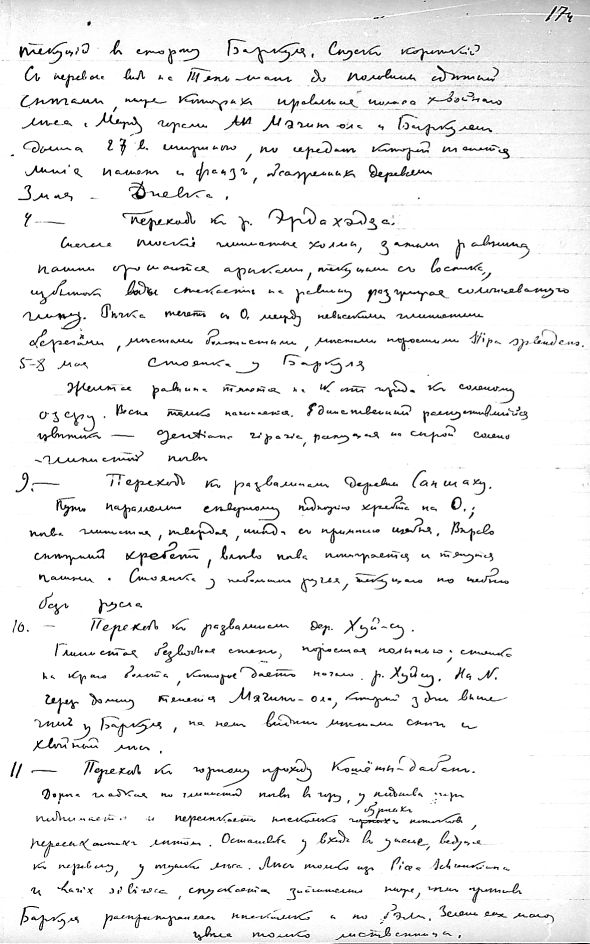 174
текущій въ сторону Баркуля. Спускъ короткій
Съ перевала видъ на Тянь-шань до половины одѣтый
снѣгами, ниже которыхъ правильная полоса хвойнаго
лѣса. Между горами Мэчин-ола и Баркулемъ
долина 27 в. шириною, по серединѣ которой тянется
линія пашенъ и фанзъ, обсаженныхъ деревьями
3 мая – Дневка.
4 — Переходъ къ р. Эрдахэдза.
Сначала плоскіе глинистые холмы, затѣмъ равнина
пашни орошаются арыками, текущими съ востока,
избытокъ воды стекаетъ на равнину солонцеватую
глину. Рѣчка течетъ съ O. между невысокими глинистыми
берегами, мѣстами болотистыми, мѣстами поросшими Stipa splendens.
5-8 мая Стоянка у Баркуля
Желтая равнина тянется на W отъ города къ соленому
озеру. Весна только начинается. Единственный распустившійся
цвѣтокъ — Gentiana riparia, растущая на сырой солено
-глинистой почвѣ
9. — Переходъ къ развалинамъ деревни Саншаху.
Путь параллельно сѣверному подножію хребта на O.;
почва глинистая, твердая, иногда съ примѣсью щебня. Вправо
снѣжный хребетъ, влѣво почва понижается и тянутся
пашни. Стоянка у небольшого ручья, текущаго по щебню
безъ русла
10. – Переходъ къ развалинамъ дер. Хуй-су.
Глинистая безводная степь, поросшая полынью; стоянка
на краю болота, которое даетъ начало р. Хуйсу. На N.
черезъ долину тянется Мэчин-ола, который здѣсь выше
чѣмъ у Баркуля, на немъ видны мѣстами снѣгъ и
хвойный лѣсъ.
11 — Переходъ къ горному проходу Кошеты-дабанъ.
Дорога гладкая по глинистой почвѣ въ гору, у подошвы горы
поднимается и пересѣкаетъ нѣсколько бурныхъ потоковъ,
пересыхающихъ лѣтомъ. Остановка у входа въ ущелье, ведущее
къ перевалу, у опушки лѣса. Лѣсъ только изъ Picea Schrenkiana
и Larix sibirica, спускается значительно ниже, чѣмъ противъ
Баркуля распространенъ нѣсколько и по
цвѣла только лиственница.